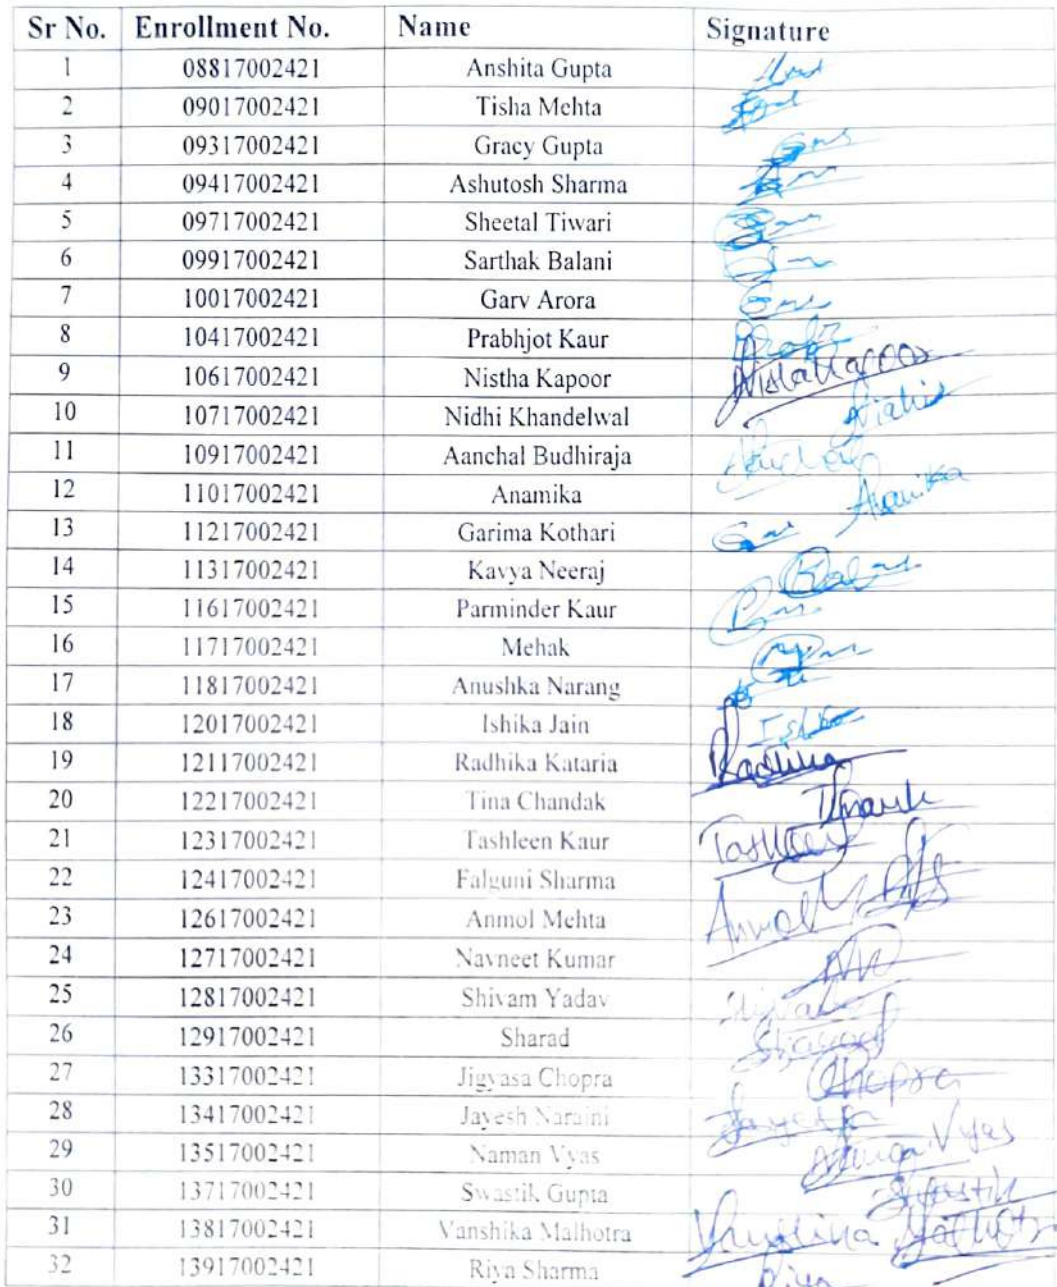 Sr No. Enrollment No. Name Signature
1 08817002421 Anshita Gupta
2 09017002421 Tisha Mehta
3 09317002421 Gracy Gupta
4 09417002421 Ashutosh Sharma
5 09717002421 Sheetal Tiwari
6 09917002421 Sarthak Balani
7 10017002421 Garv Arora
8 10417002421 Prabhjot Kaur
9 10617002421 Nistha Kapoor
10 10717002421 Nidhi Khandelwal
11 10917002421 Aanchal Budhiraja
12 11017002421 Anamika Anamika
13 11217002421 Garima Kothari
14 11317002421 Kavya Neeraj
15 11617002421 Parminder Kaur
16 11717002421 Mehak
17 11817002421 Anushka Narang
18 12017002421 Ishika Jain
19 12117002421 Radhika Kataria
20 12217002421 Tina Chandak
21 12317002421 Tashleen Kaur
22 12417002421 Falguni Sharma
23 12617002421 Anmol Mehta Anmol
24 12717002421 Navneet Kumar
25 12817002421 Shivam Yadav
26 12917002421 Sharad Sharad
27 13317002421 Jigyasa Chopra Chopra
28 13417002421 Jayesh Naraini
29 13517002421 Naman Vyas Vyas
30 13717002421 Swastik Gupta Swastik
31 13817002421 Vanshika Malhotra Vanshika Malhotra
32 13917002421 Riya Sharma Riya